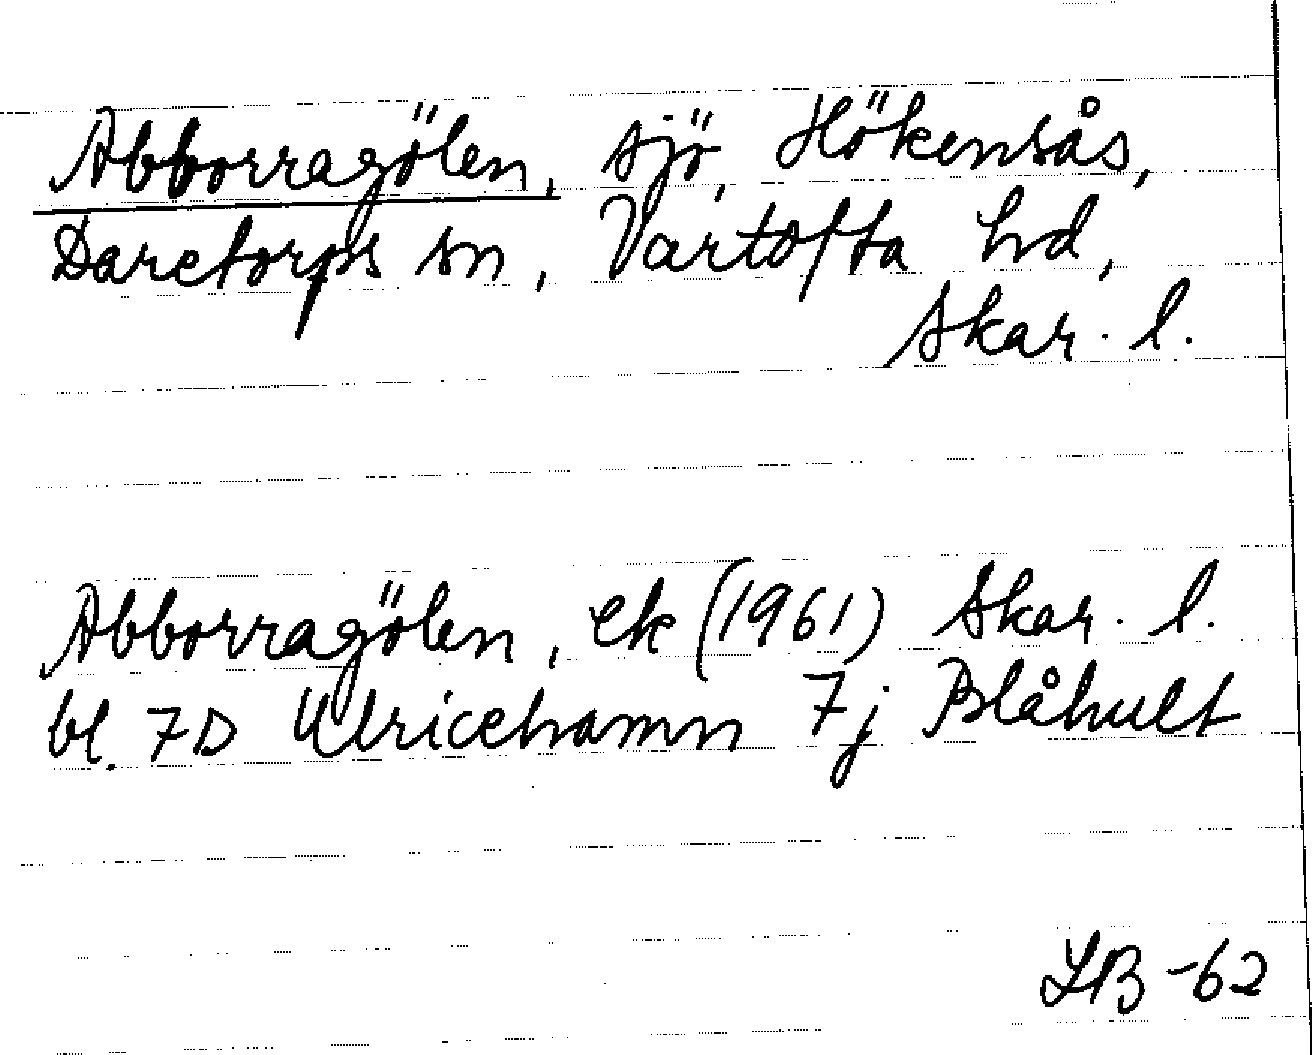 Abborragölen, sjö, Hökensås,
Daretorps sn, Vartofta hd,
Skar. l.
Abborragölen, ek (1961) Skar. l.
bl. 7D Ulricehamn 7j Blåhult
LB -62